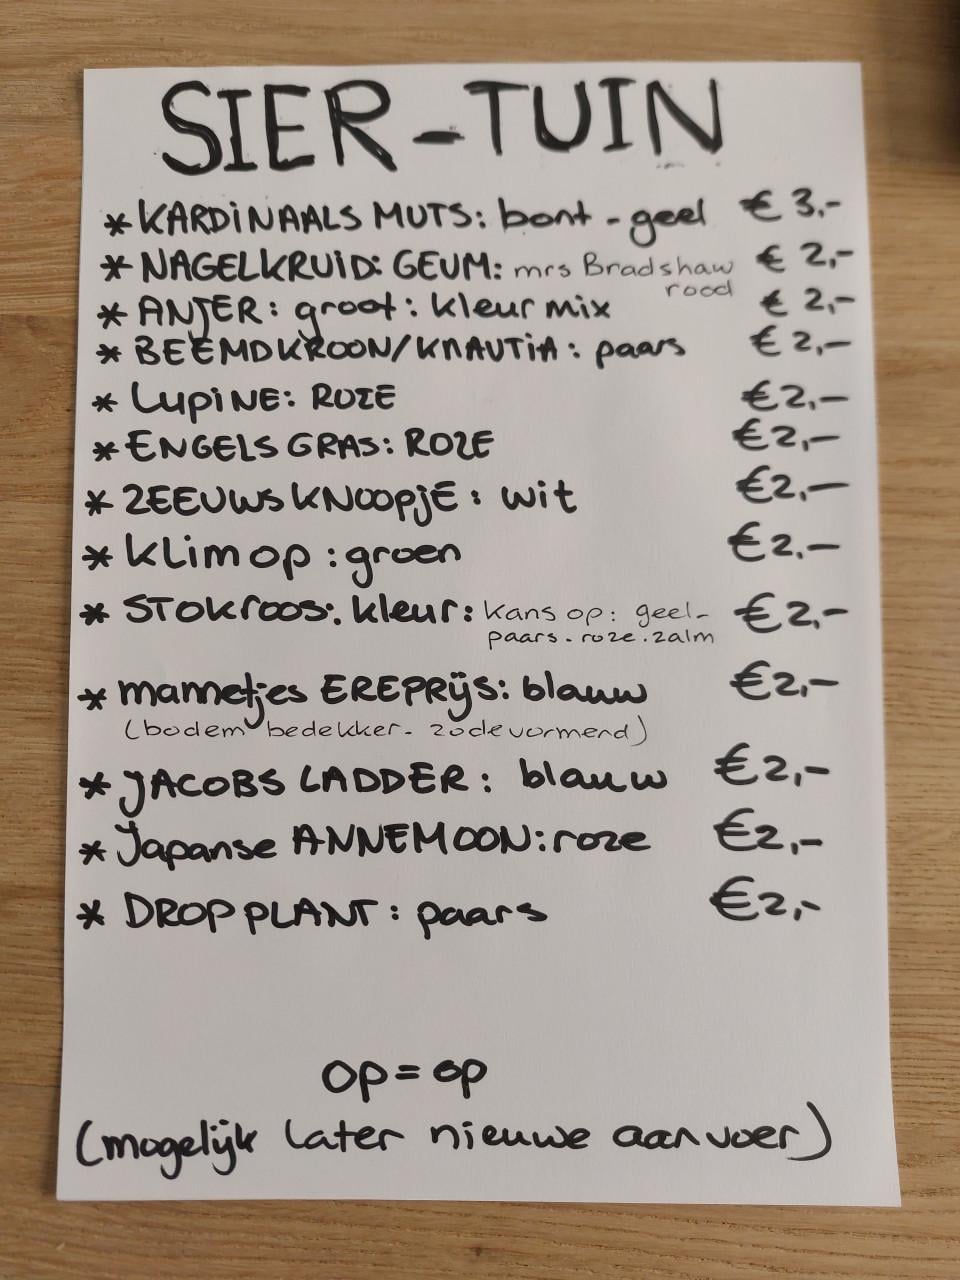 SIER-TUIN
* KARDINAALS MUTS: bont-geel €3,-
* NAGELKRUID: GEUM: mrs Bradshaw €2,-
rood
* ANJER: groot: kleur mix €2,-
* BEEMDKROON/KNAUTIA: paars €2,-
* LUPINE: ROZE €2,-
* ENGELS GRAS: ROZE €2,-
* ZEEUWS KNOOPJE: wit €2,-
* KLIMOP: groen €2,-
* STOKROOS: kleur: kans op: geel- €2,-
paars. roze. zalm
* mannetjes EREPRIJS: blauw €2,-
(bodem bedekker- zodevormend)
* JACOBS LADDER: blauw €2,-
* Japanse ANNEMOON: roze €2,-
* DROPPLANT: paars €2,-
op=op
(mogelijk later nieuwe aanvoer)